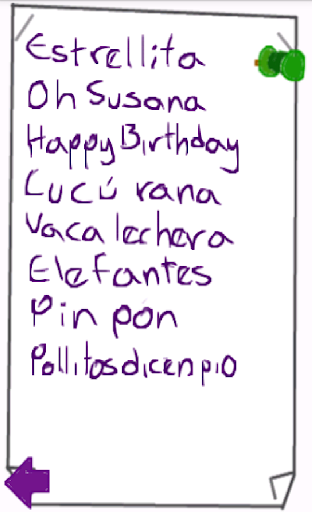 Estrellita
Oh Susana
Happy Birthday
Cucú rana
Vaca lechera
Elefantes
Pin pon
Pollitos dicen pio